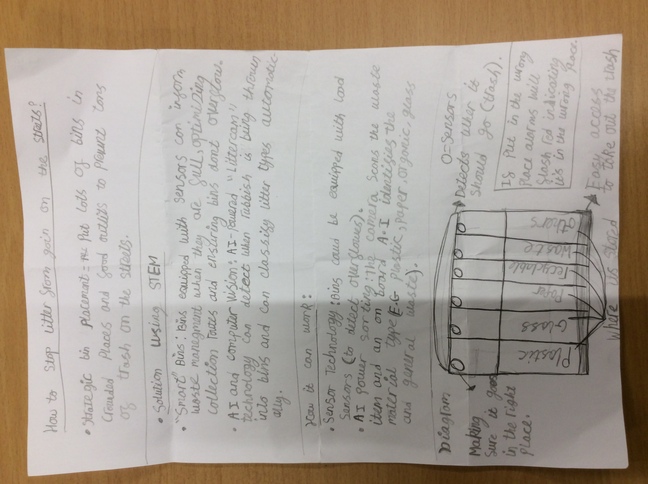 How to stop litter from going on the streets?
• Strategic bin placement = Put lots of bins in
crowded places and food outlets to prevent tons
of trash on the streets.
• Solution using STEM
• "Smart" Bins: Bins equipped with sensors can inform
waste managment when they are full, optimizing
collection routes and ensuring bins dont overflow.
• AI and computer vision: AI-Powered "Littercam"
technology can detect when rubbish is being thrown
into bins and can classify litter types automatic-
ally.
How it can work:
• Sensor Technology: Bins could be equipped with load
Sensors (to detect overflows).
• AI power sorting: The camera scans the waste
item and an on board A.I identifies the
material type E.G Plastic, paper, organic, glass
and general waste).
Diagram
O-Sensors
Detects when it
should go (trash).
Making
Sure it goes
in the right
Place.
Plastic
Glass
Paper
recyclable
Waste
Others
If put in the wrong
Place alarms will
flash red indicating
it's in the wrong place.
Where its stored
Easy access
to take out the trash